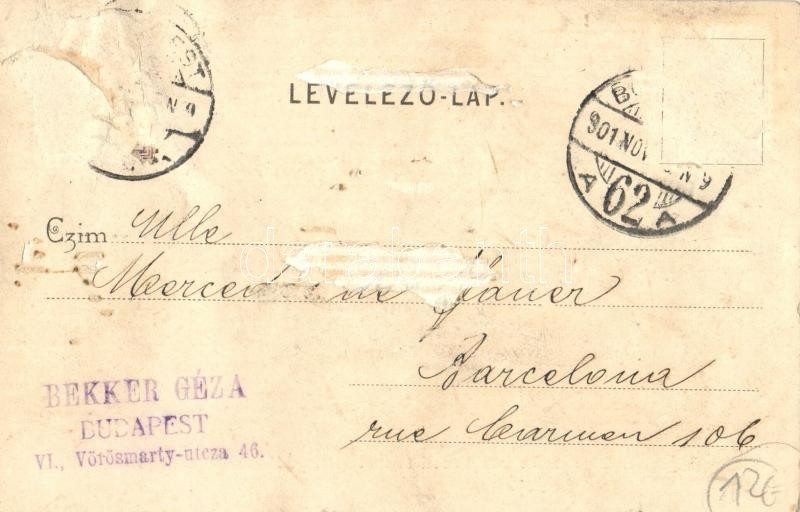 LEVELEZŐ-LAP.
901 NOV
9
A 62 A
Czim Mlle
Janer
Barcelona
rue Carmen 106
BEKKER GÉZA
BUDAPEST
VI., Vörösmarty-utcza 46.
12€